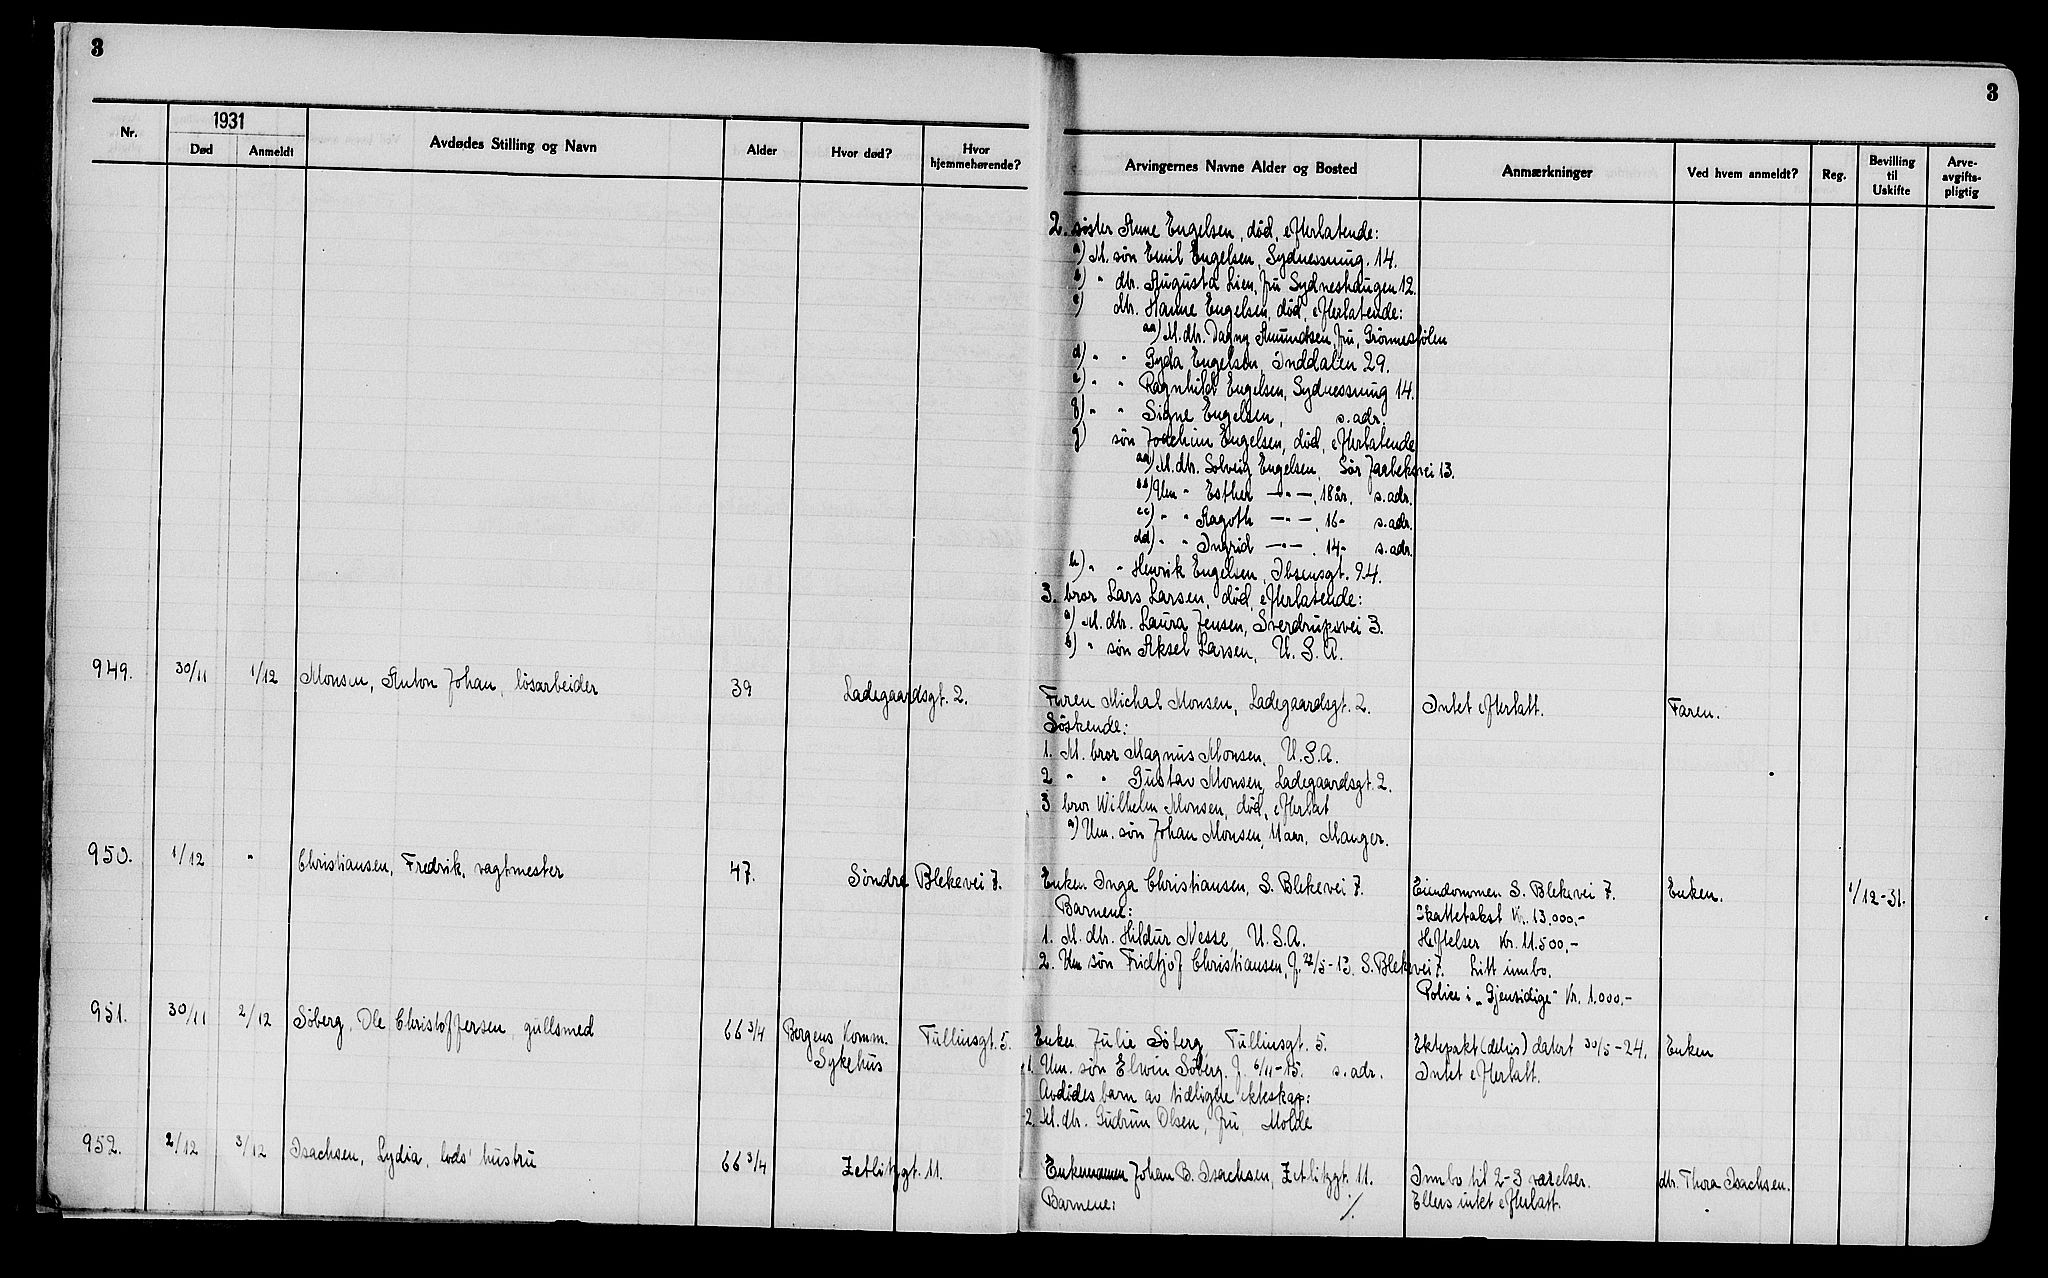 3
3
Nr.
1931
Død
Anmeldt
Avdødes Stilling og Navn
Alder
Hvor død?
Hvor hjemmehørende?
Arvingernes Navne Alder og Bosted
Anmærkninger
Ved hvem anmeldt?
Reg.
Bevilling til Uskifte
Arve-avgifts-pligtig
2. søster Anne Engelsen, død, efterlatende:
a) M. søn Emil Engelsen, Sydnessmug. 14.
b) " dtr. Augusta Lien, fru Sydneshaugen 12.
c) dtr. Hanne Engelsen, død, efterlatende:
aa) M. dtr. Dagny Amundsen, fru,
d) " " Gyda Engelsen, Inddalen 29.
e) " " Ragnhild Engelsen, Sydnessmug 14.
f) " " Signe Engelsen, s. adr.
g) søn Joachim Engelsen, død, efterlatende
aa) M. dtr. Solveig Engelsen, Sør 13.
bb) Um " Esther —"—, 18 år, s. adr.
cc) " " Ragoth —"—, 16 " s. adr.
dd) " " Ingrid —"—, 14 " s. adr.
h) " " Henrik Engelsen, Ibsensgt. 94.
3. bror Lars Larsen, død, efterlatende:
a) M. dtr. Laura Jensen, Sverdrupsvei 3.
b) " søn Aksel Larsen, U. S. A.
949. 30/11 1/12 Monsen, Anton Johan, løsarbeider 39 Ladegaardsgt. 2. Faren Michal Monsen, Ladegaardsgt. 2. Intet efterlatt. Faren.
Søskende:
1. M. bror Magnus Monsen, U. S. A.
2 " " Gustav Monsen, Ladegaardsgt. 2.
3 bror Wilhelm Monsen, død, efterlat
a) Um. søn Johan Monsen, 11 aar, Manger.
950. 1/12 " Christiansen, Fredrik, vagtmester 47. Søndre Blekevei 7. Enken Inga Christiansen, S. Blekevei 7. Eiendommen S. Blekevei 7. Enken. 1/12-31.
Barnene: Skattetakst Kr. 13.000,-
1. M. dtr. Hildur Nesse, U. S. A. Heftelser Kr. 11.500,-
2. Um søn Fridtjof Christiansen, f. 22/5-13. S. Blekevei 7. Litt innbo.
Police i "Gjensidige" Kr. 1.000.-
951. 30/11 2/12 Søberg, Ole Christoffersen, gullsmed 66 3/4 Bergens Komm. Sykehus Tullinsgt. 5. Enken Julie Søberg, Tullinsgt. 5. Ektepakt (delvis) datert 30/5-24. Enken
1. Um. søn Elwin Søberg, f. 6/11-15. s. adr. Intet efterlatt.
Avdødes barn av tidligere ekteskap:
2. M. dtr. Gudrun Olsen, fru, Molde
952. 2/12 3/12 Isachsen, Lydia, lods' hustru 66 3/4 Zetlitzgt. 11. Enkemannen Johan B. Isachsen, Zetlitzgt. 11. Innbo til 2-3 værelser. dtr. Thora Isachsen.
Barnene: ./. Ellers intet efterlatt.